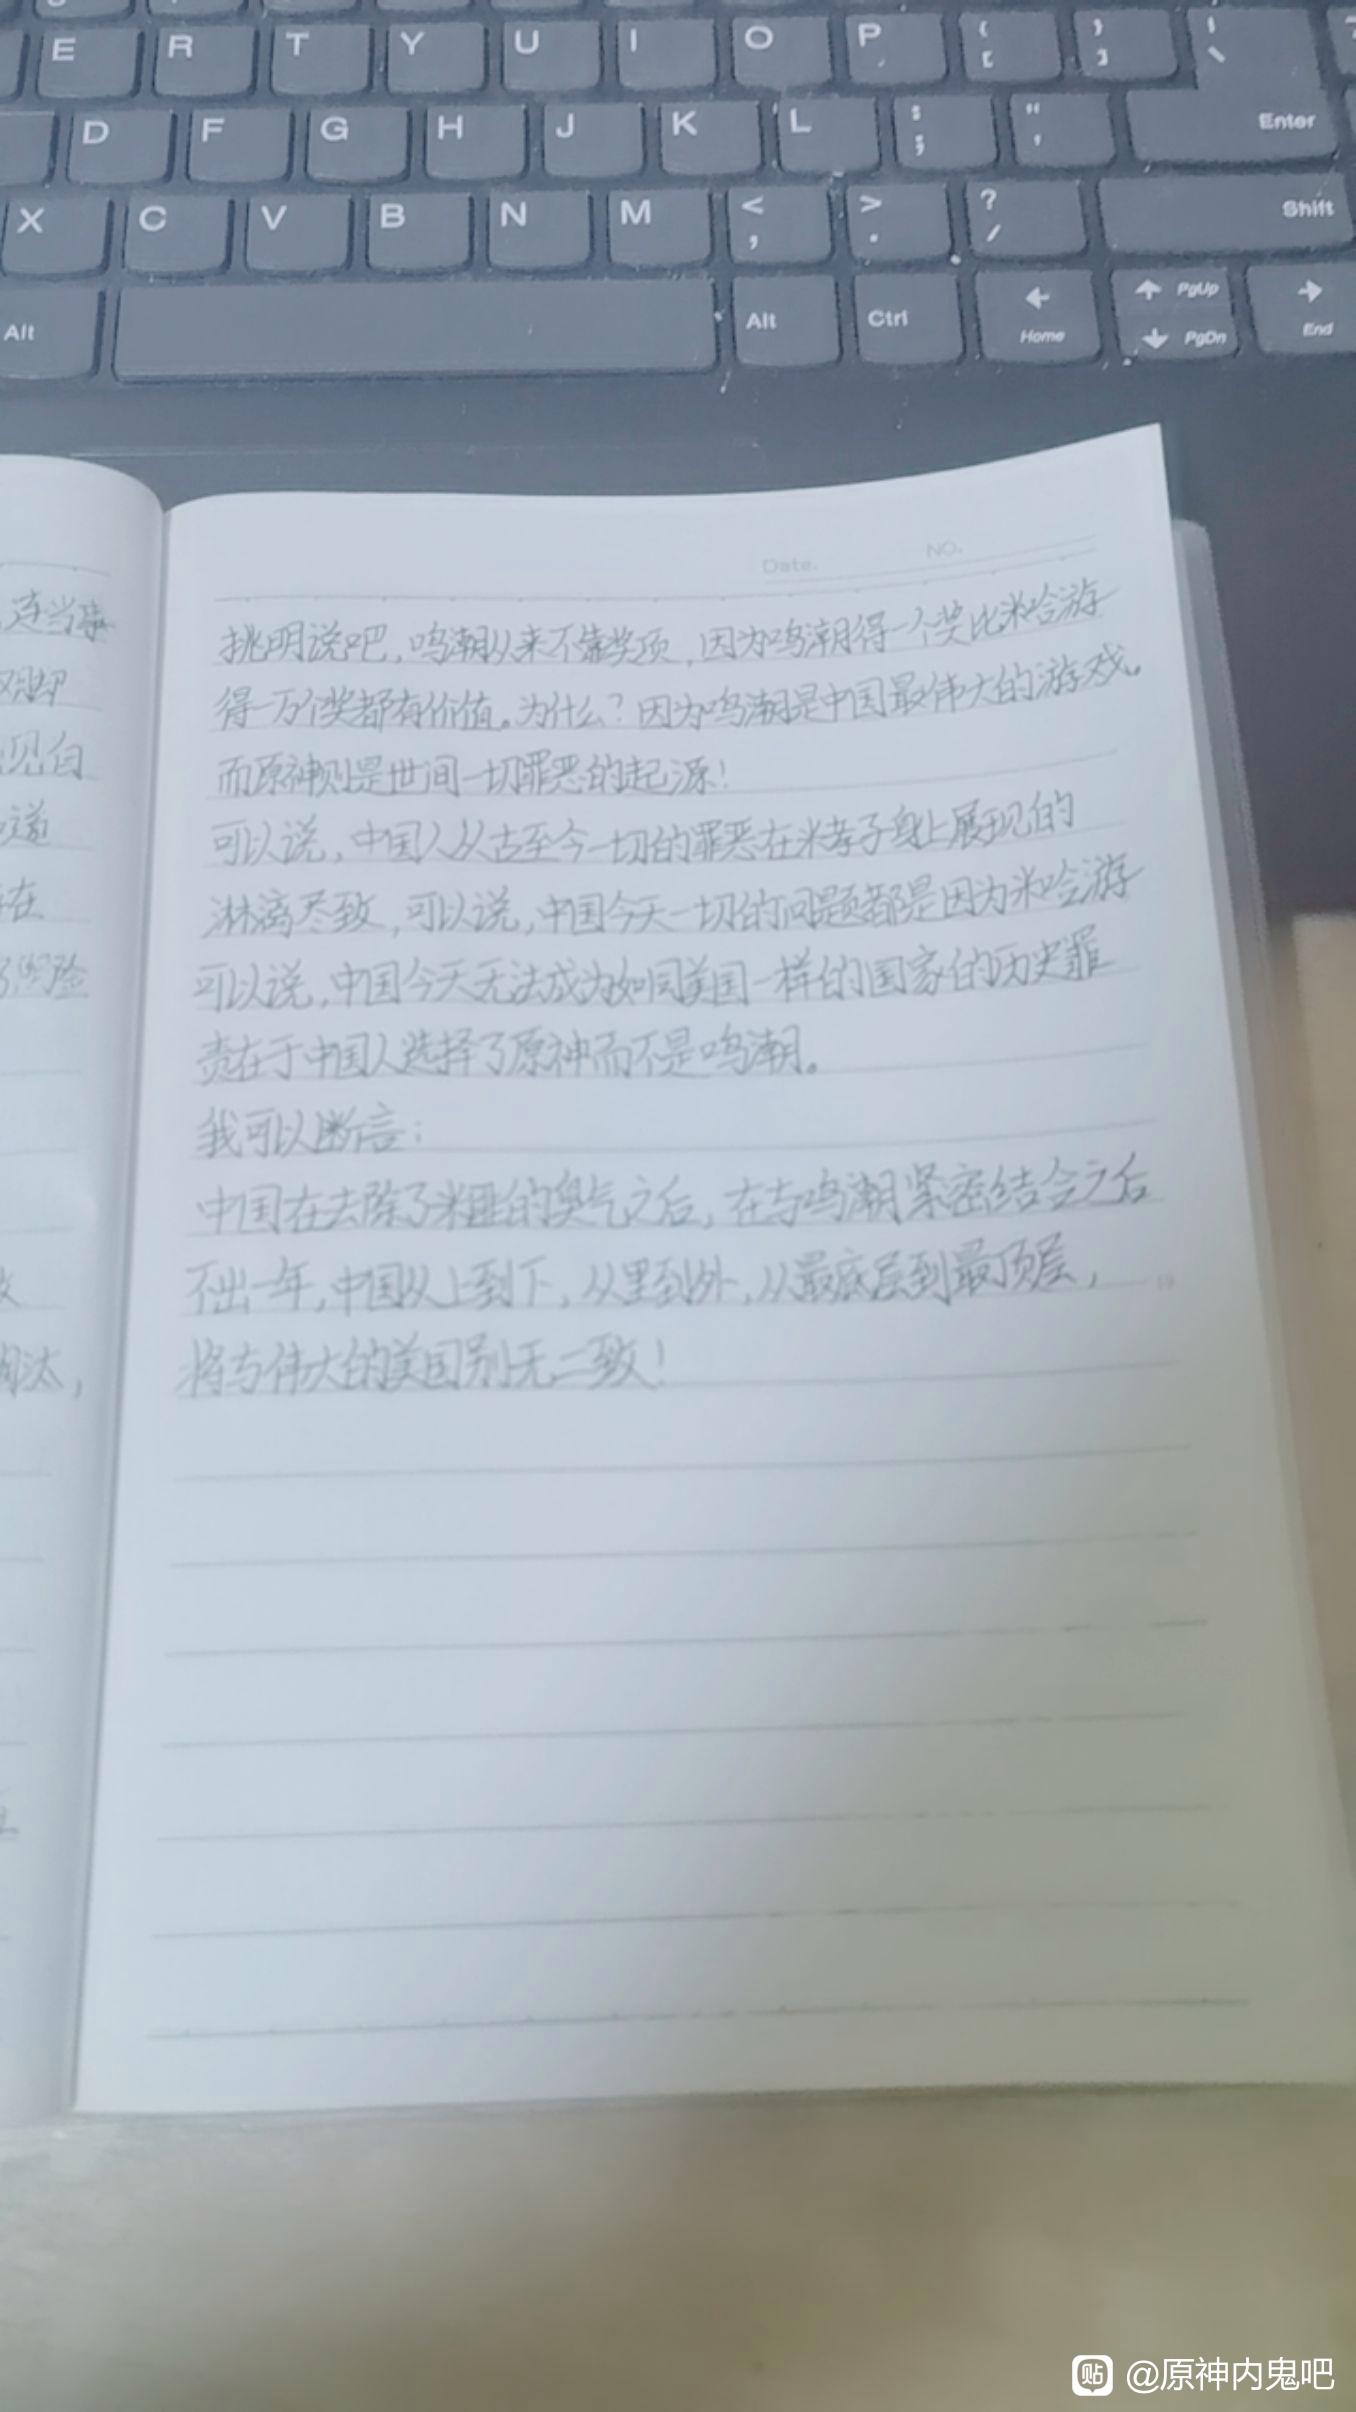 E R T Y U I O P { [ } ] | \
D F G H J K L : ; " ' Enter
X C V B N M < , > . ? / Shift
Alt Alt Ctrl Home PgUp PgDn End
连当事
观却
见自
道
在
风险
汰，
Date. NO.
挑明说吧，鸣潮从来不靠奖项，因为鸣潮得一个奖比米哈游
得一万个奖都有价值。为什么？因为鸣潮是中国最伟大的游戏。
而原神则是世间一切罪恶的起源！
可以说，中国人从古至今一切的罪恶在米孝子身上展现的
淋漓尽致，可以说，中国今天一切的问题都是因为米哈游
可以说，中国今天无法成为如同美国一样的国家的历史罪
责在于中国人选择了原神而不是鸣潮。
我可以断言：
中国在去除了米的臭气之后，在与鸣潮紧密结合之后
不出一年，中国从上到下，从里到外，从最底层到最顶层，
将与伟大的美国别无二致！
贴 @原神内鬼吧